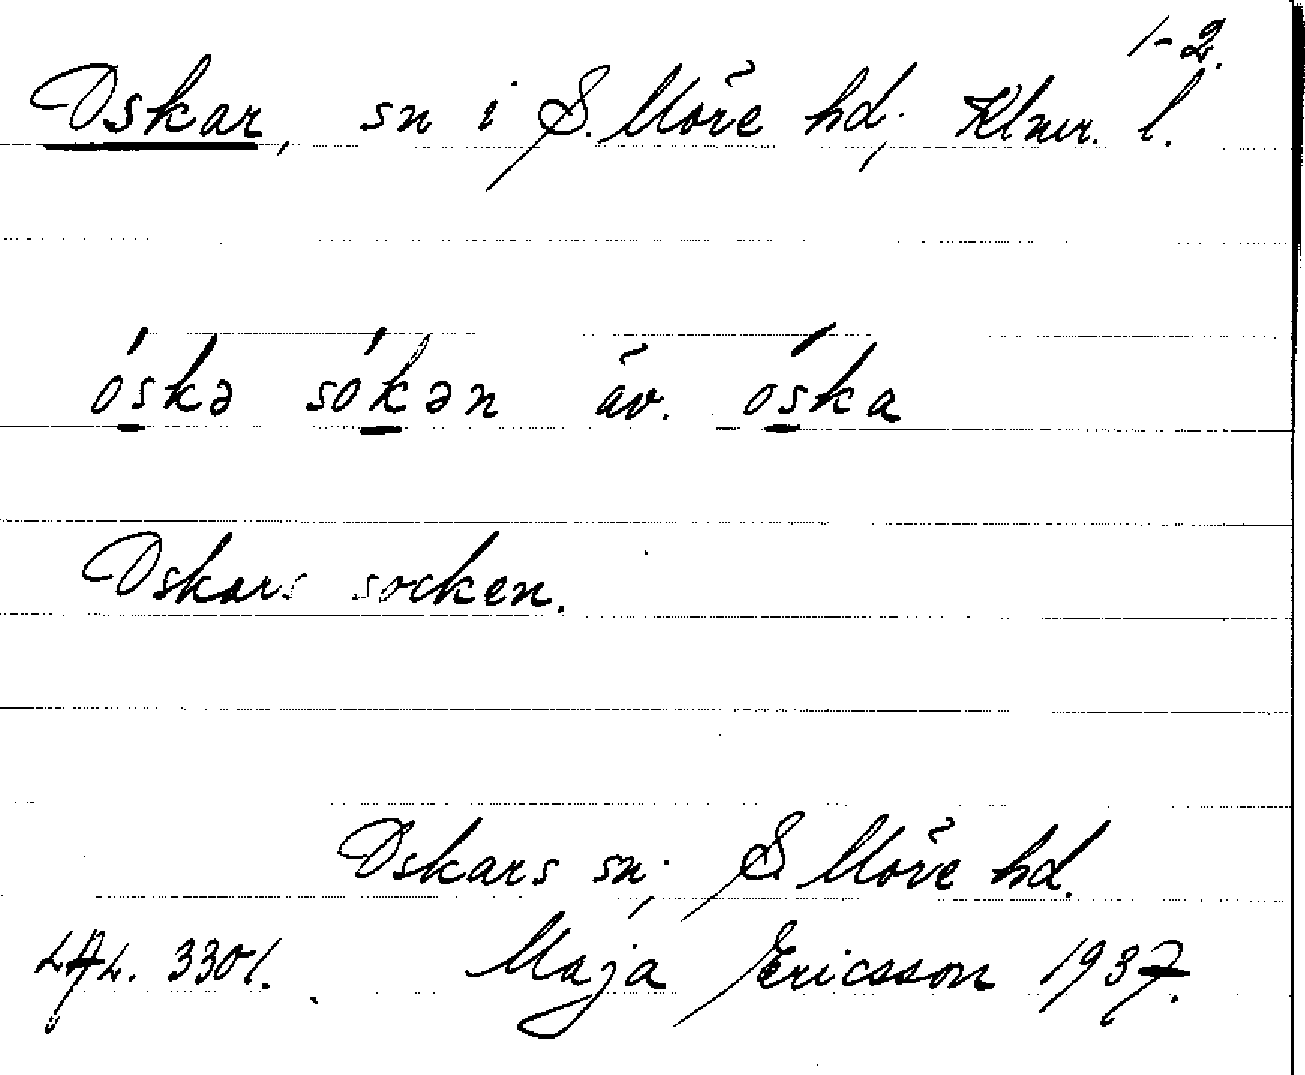 1-2.
Oskar, sn i S. Möre hd; Klmr. l.
óskə sókən äv. óska
Oskars socken.
Oskars sn; S Möre hd.
3301. Maja Ericsson 1937.